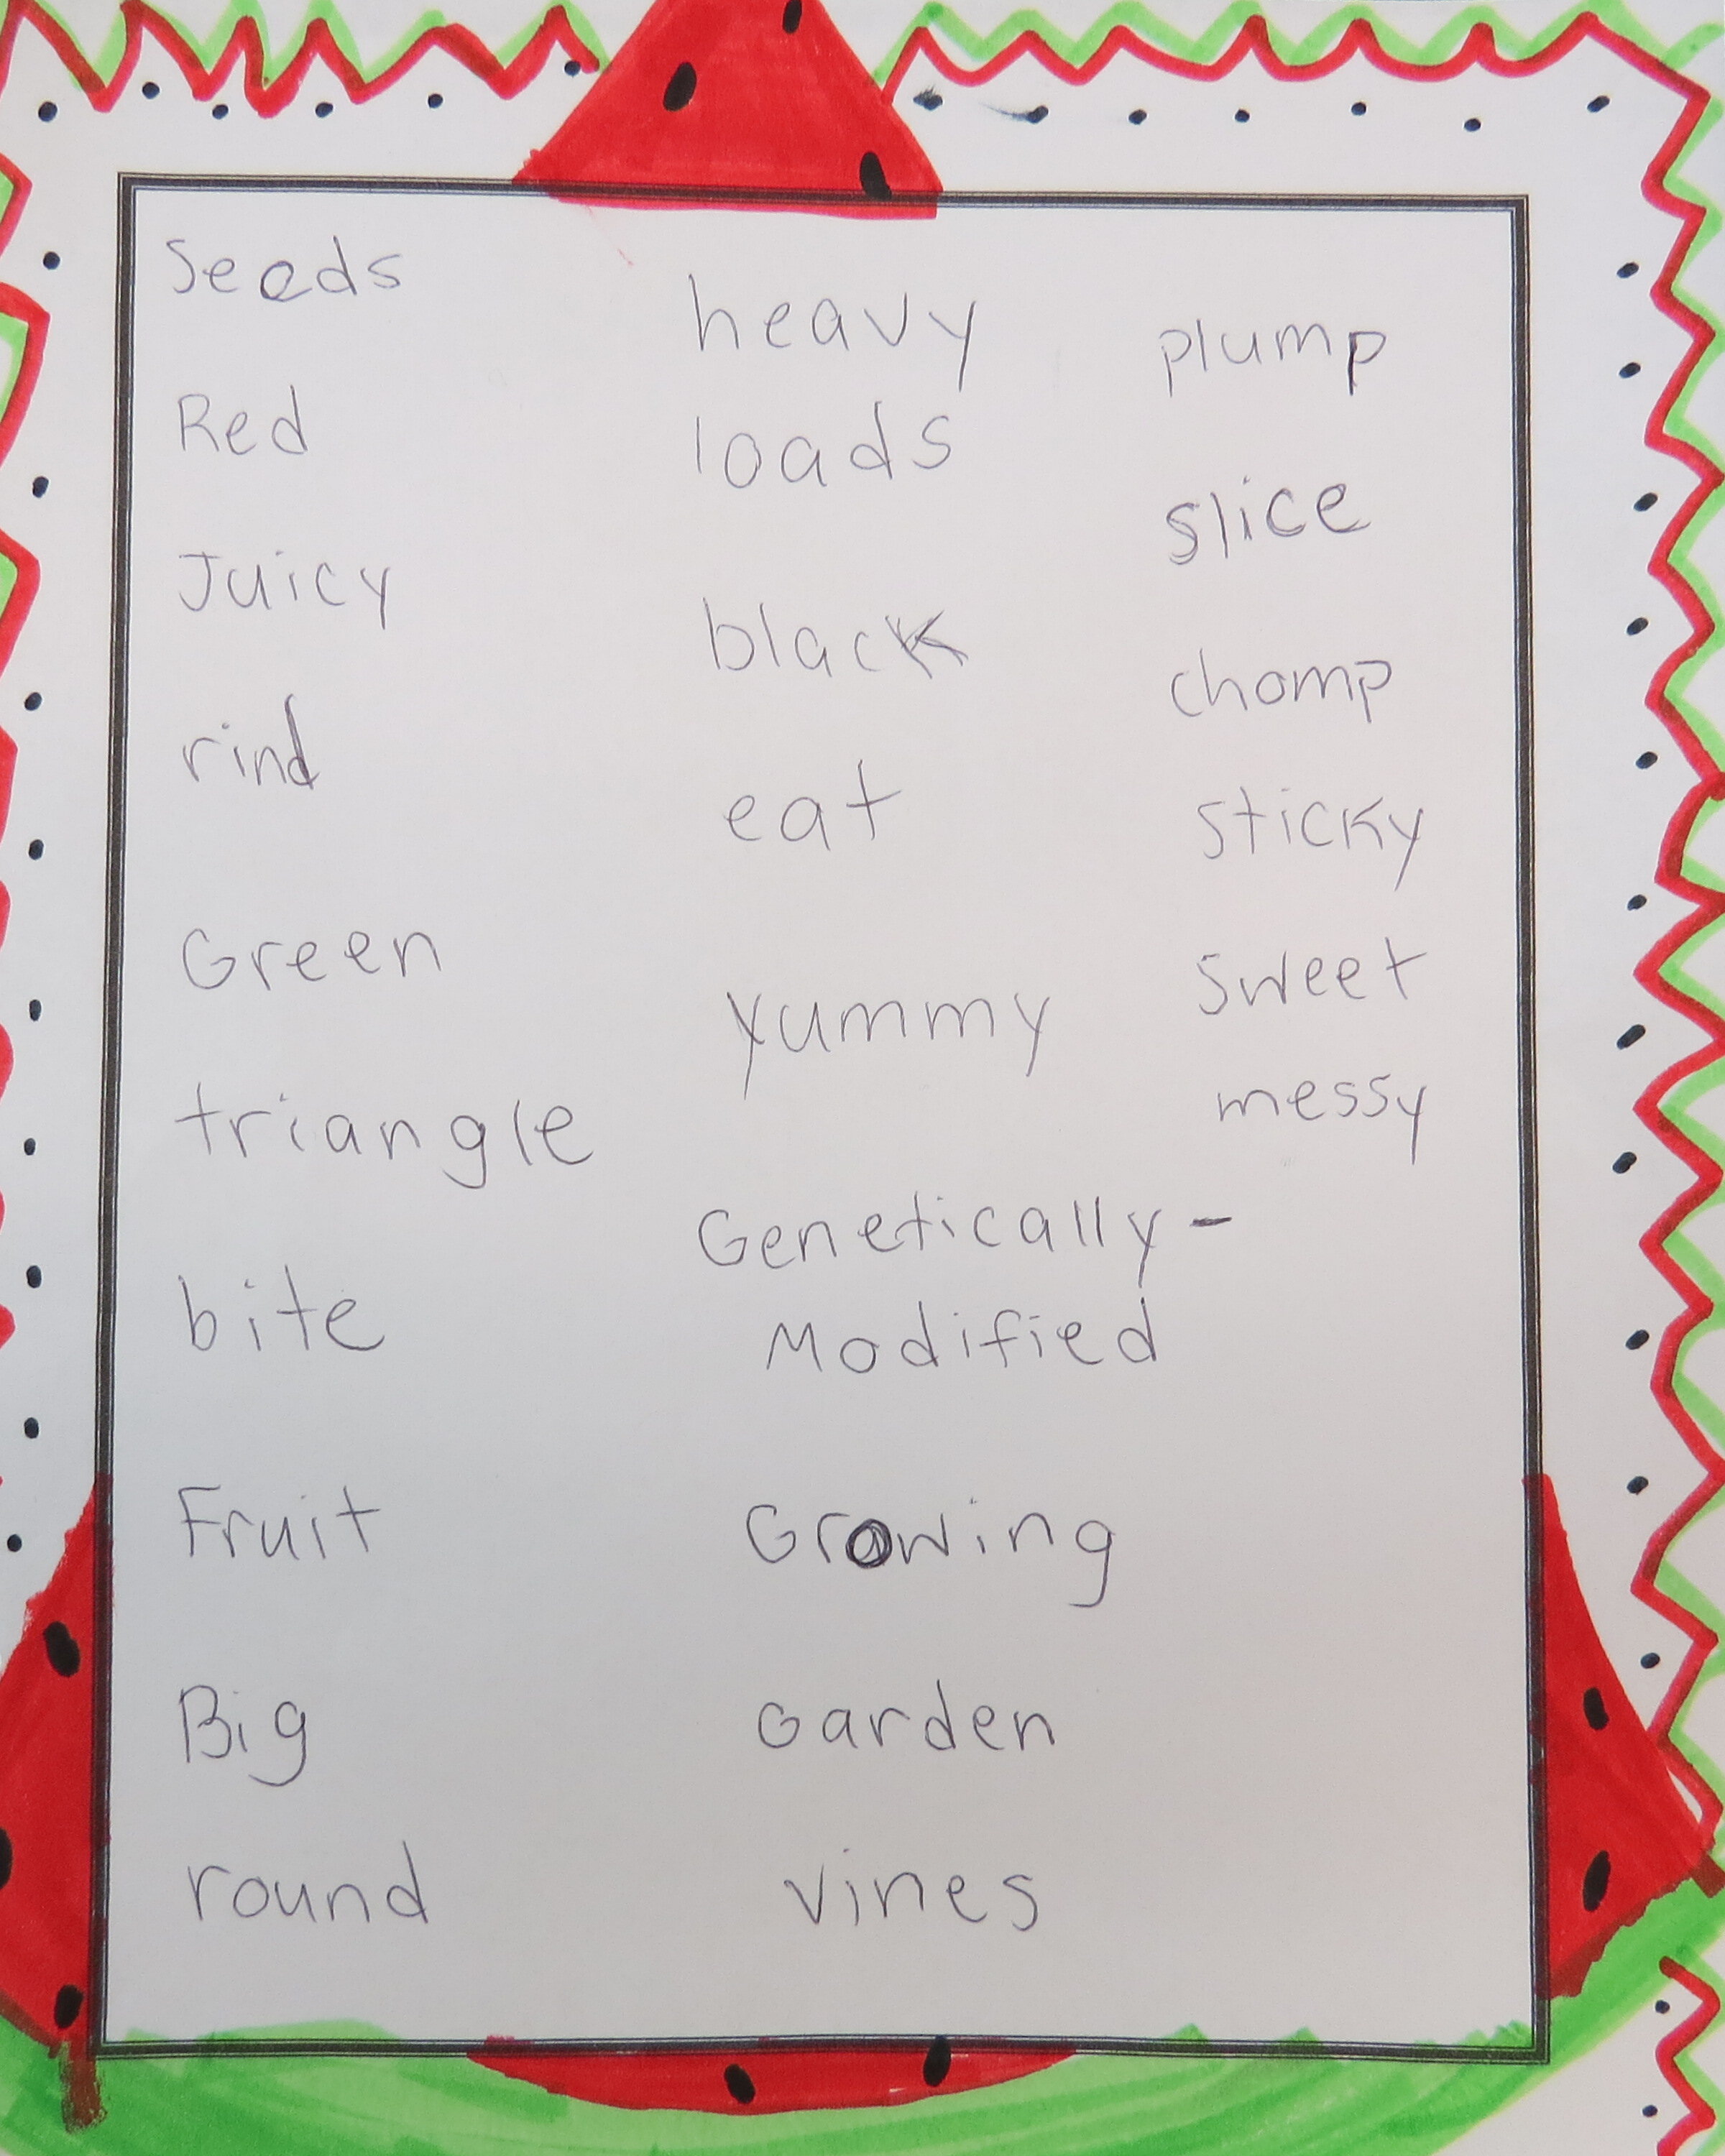 Seeds
Red
Juicy
rind
Green
triangle
bite
Fruit
Big
round
heavy
loads
black
eat
yummy
Genetically-
Modified
Growing
Garden
vines
plump
slice
chomp
sticky
sweet
messy